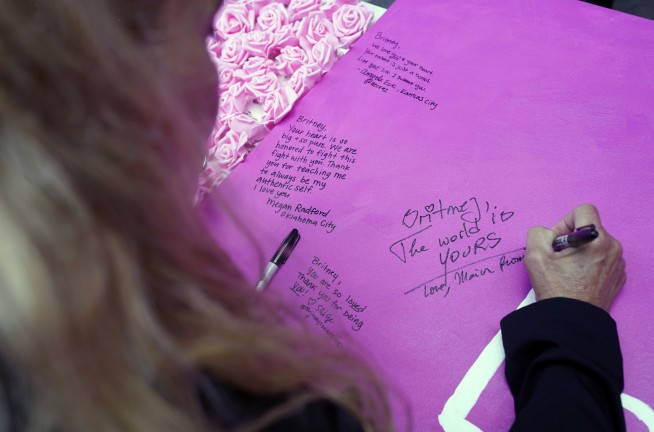 Britney,
We love you & your heart
Like you.
Kansas City
Britney,
Your heart is so
big + so pure. We are
honored to fight this
fight with you. Thank
you for teaching me
to always be my
authentic self.
I love you
Megan Radford
Oklahoma City
Britney,
The world is
YOURS
Love,
Britney,
You are so loved
Thank you for being
YOU!